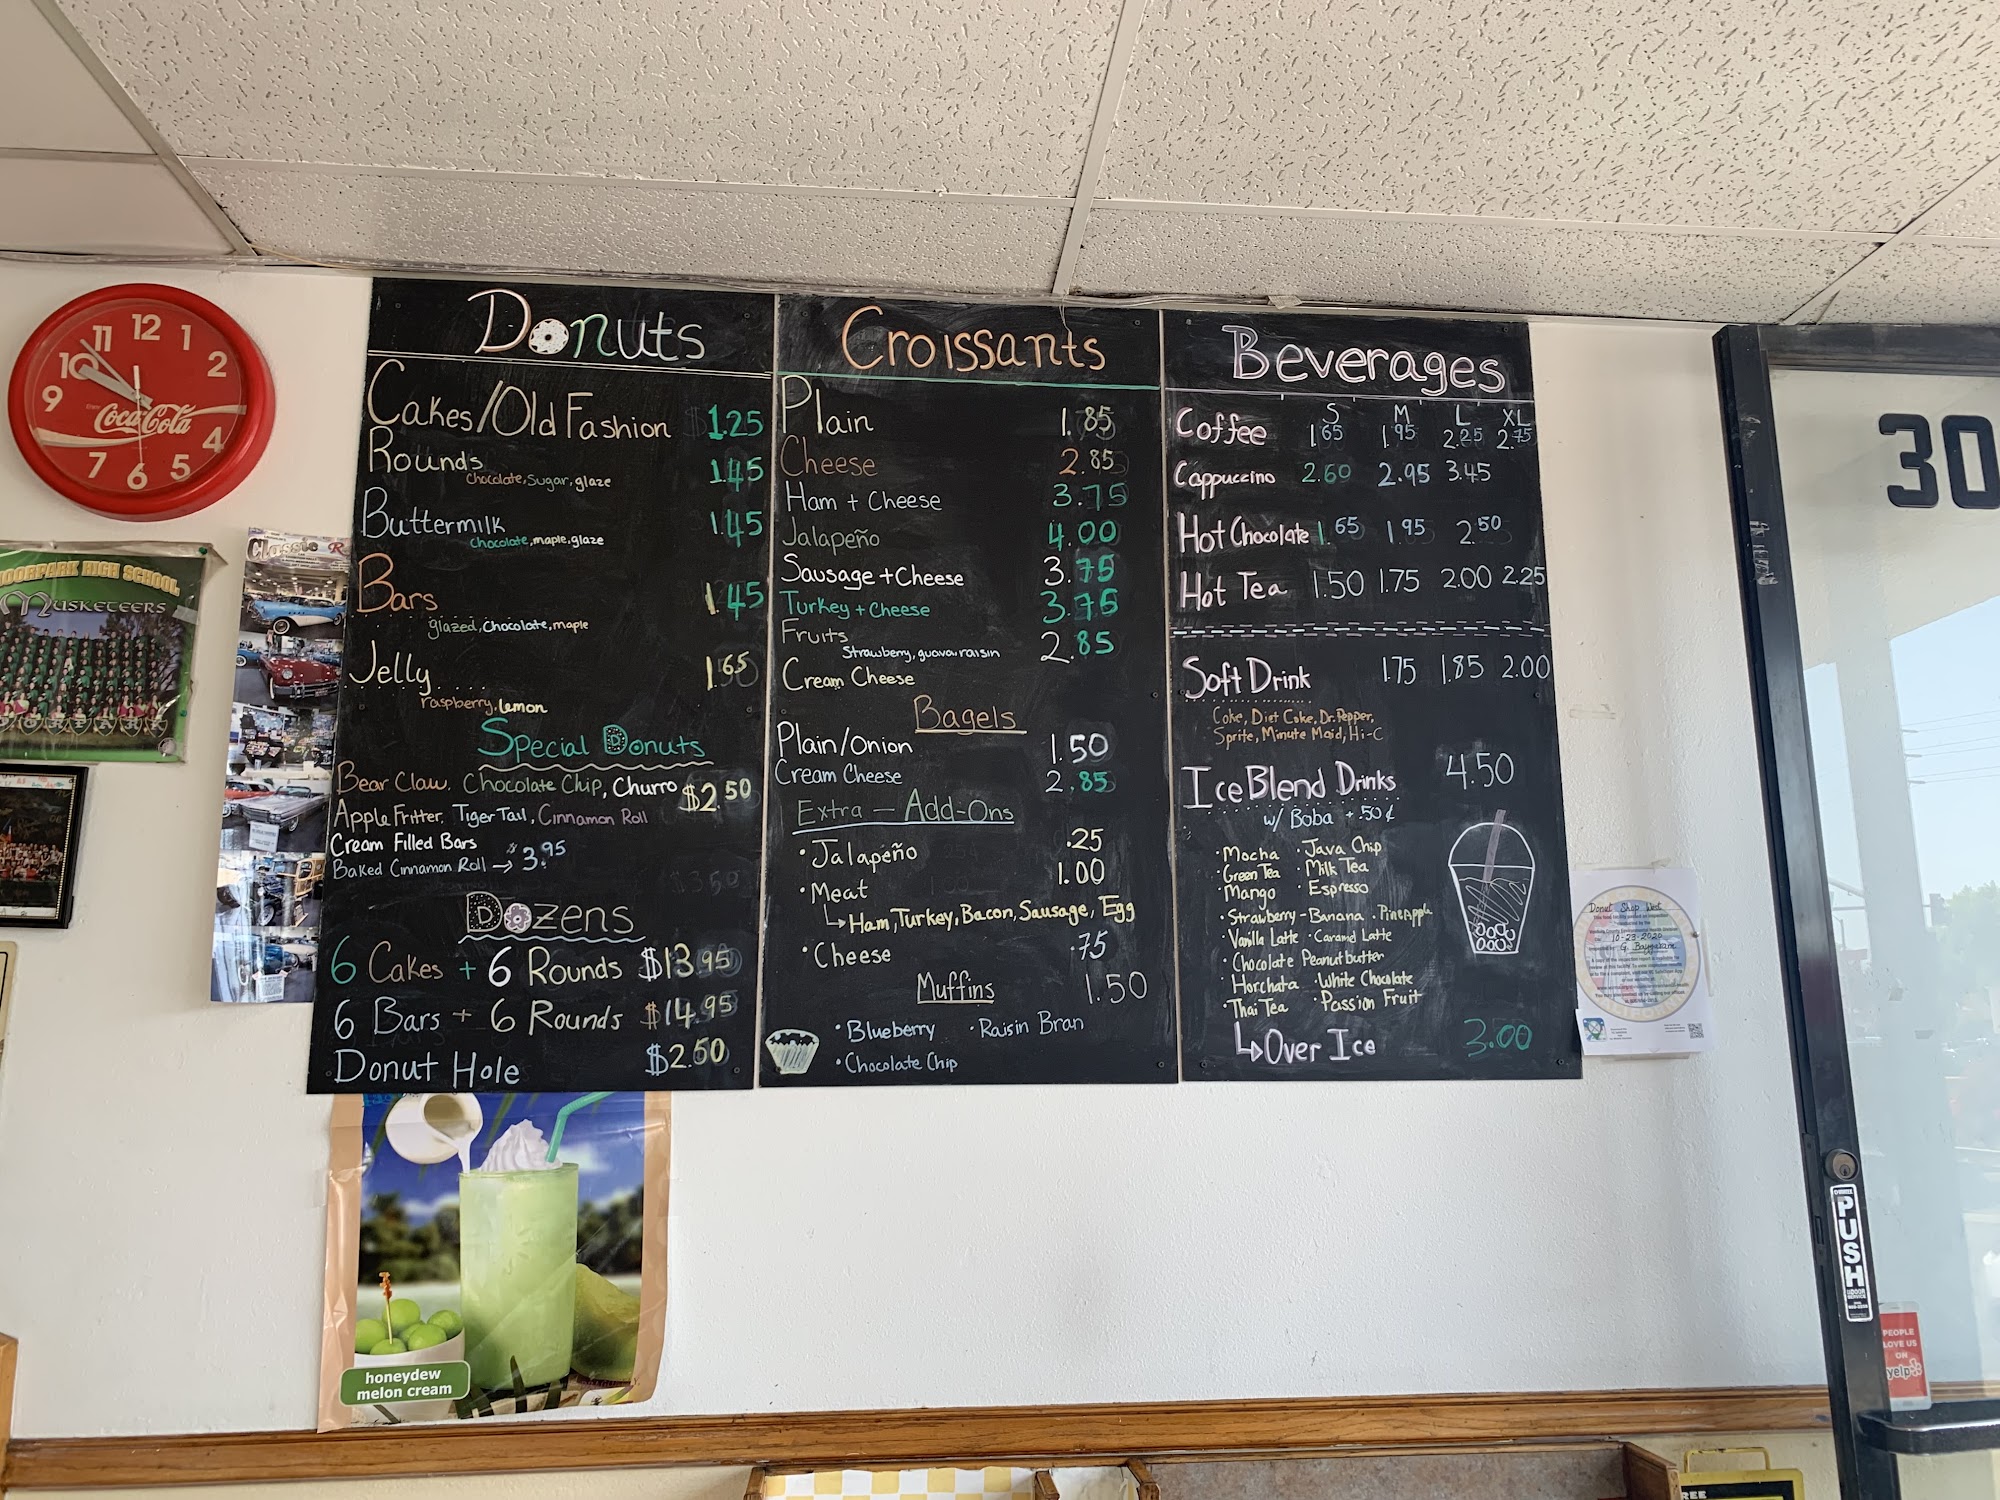 Donuts
Cakes/Old Fashion $1.25
Rounds 1.45
chocolate, sugar, glaze
Buttermilk 1.45
chocolate, maple, glaze
Bars 1.45
glazed, chocolate, maple
Jelly 1.65
raspberry, lemon
Special Donuts
Bear Claw, Chocolate Chip, Churro $2.50
Apple Fritter, Tiger Tail, Cinnamon Roll
Cream Filled Bars
Baked Cinnamon Roll → $3.95
Dozens
6 Cakes + 6 Rounds $13.95
6 Bars + 6 Rounds $14.95
Donut Hole $2.50
Croissants
Plain 1.85
Cheese 2.85
Ham + Cheese 3.75
Jalapeño 4.00
Sausage + Cheese 3.75
Turkey + Cheese 3.75
Fruits 2.85
Strawberry, guava, raisin
Cream Cheese
Bagels
Plain/Onion 1.50
Cream Cheese 2.85
Extra - Add-Ons
• Jalapeño .25
• Meat 1.00
↳ Ham, Turkey, Bacon, Sausage, Egg
• Cheese .75
Muffins 1.50
• Blueberry • Raisin Bran
• Chocolate Chip
Beverages
S M L XL
Coffee 1.65 1.95 2.25 2.75
Cappuccino 2.60 2.95 3.45
Hot Chocolate 1.65 1.95 2.50
Hot Tea 1.50 1.75 2.00 2.25
Soft Drink 1.75 1.85 2.00
Coke, Diet Coke, Dr. Pepper,
Sprite, Minute Maid, Hi-C
Ice Blend Drinks 4.50
w/ Boba + .50¢
• Mocha • Java Chip
• Green Tea • Milk Tea
• Mango • Espresso
• Strawberry - Banana • Pineapple
• Vanilla Latte • Caramel Latte
• Chocolate Peanutbutter
• Horchata • White Chocolate
• Thai Tea • Passion Fruit
↳ Over Ice 3.00
12 1 2 4 5 6 7 9 10 11
Coca-Cola
MOORPARK HIGH SCHOOL
MUSKETEERS
Classic
honeydew
melon cream
Donut Shop West
10-23-2020
30
PUSH
PEOPLE
LOVE US
ON
yelp